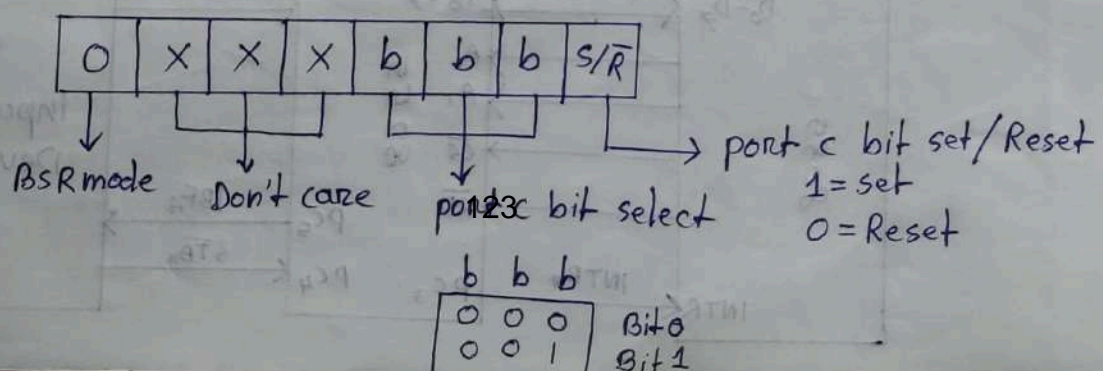 0 X X X b b b S/R̅
BSR mode
Don't care
port 123c bit select
port c bit set/Reset
1 = set
0 = Reset
b b b
0 0 0 Bit 0
0 0 1 Bit 1
PC4
INTR